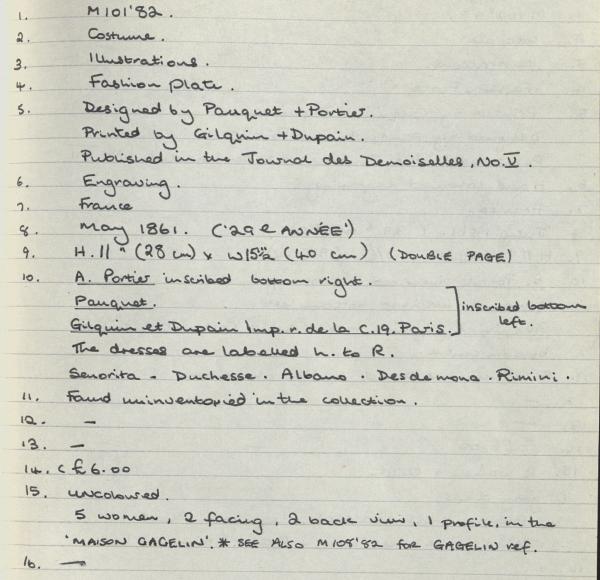 1. M101'82.
2. Costume.
3. Illustrations.
4. Fashion plate.
5. Designed by Pauquet + Portier.
Printed by Gilquin + Dupain.
Published in the Journal des Demoiselles, No. V.
6. Engraving.
7. France
8. May 1861. ('29e ANNÉE')
9. H. 11" (28 cm) x W 15½" (40 cm) (DOUBLE PAGE)
10. A. Portier inscribed bottom right.
Pauquet.
Gilquin et Dupain Imp. r. de la C. 19. Paris.
inscribed bottom
left.
The dresses are labelled L. to R.
Senorita - Duchesse. Albano. Desdemona. Rimini.
11. Found uninventoried in the collection.
12. -
13. -
14. c £6.00
15. uncoloured.
5 women, 2 facing, 2 back view, 1 profile, in the
'MAISON GAGELIN'. * SEE ALSO M108'82 for GAGELIN ref.
16. -